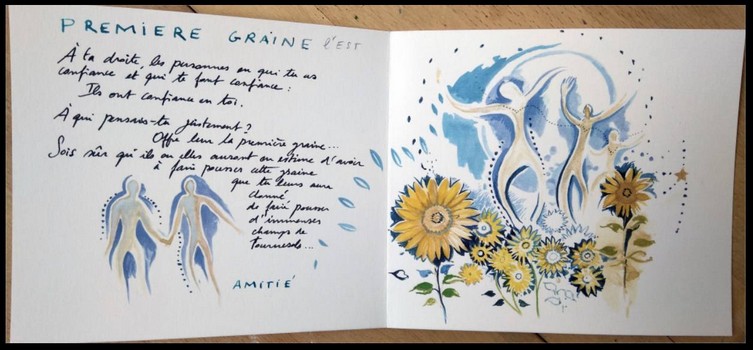 PREMIERE GRAINE l'EST
À ta droite, les personnes en qui tu as
confiance et qui te font confiance :
Ils ont confiance en toi.
À qui penses-tu justement ?
Offre leur la première graine...
Sois sûr qu'ils ou elles auront en estime d'avoir
à faire pousser cette graine
que tu leurs aura
donné
de faire pousser
d'immenses
champs de
Tournesols...
AMITIÉ